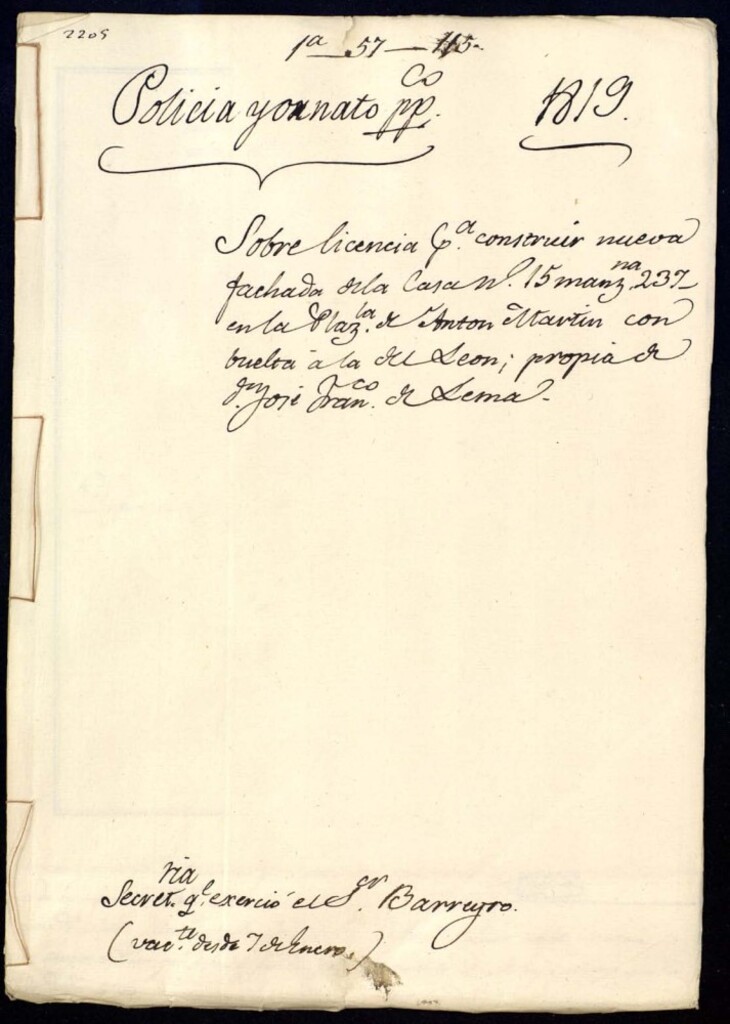 2205
1ª 57 — 115-
Policia y ornato ppco. 1819.
Sobre licencia pª. construir nueva
fachada de la Casa nº. 15 manzna. 237
en la Plazla. de Anton Martin con
buelta á la del Leon; propia de
dn José Franco. de Lema.
Secretria. qe. exerció el Sor. Barreyro.
(vacte. desde 7 de Enero.)